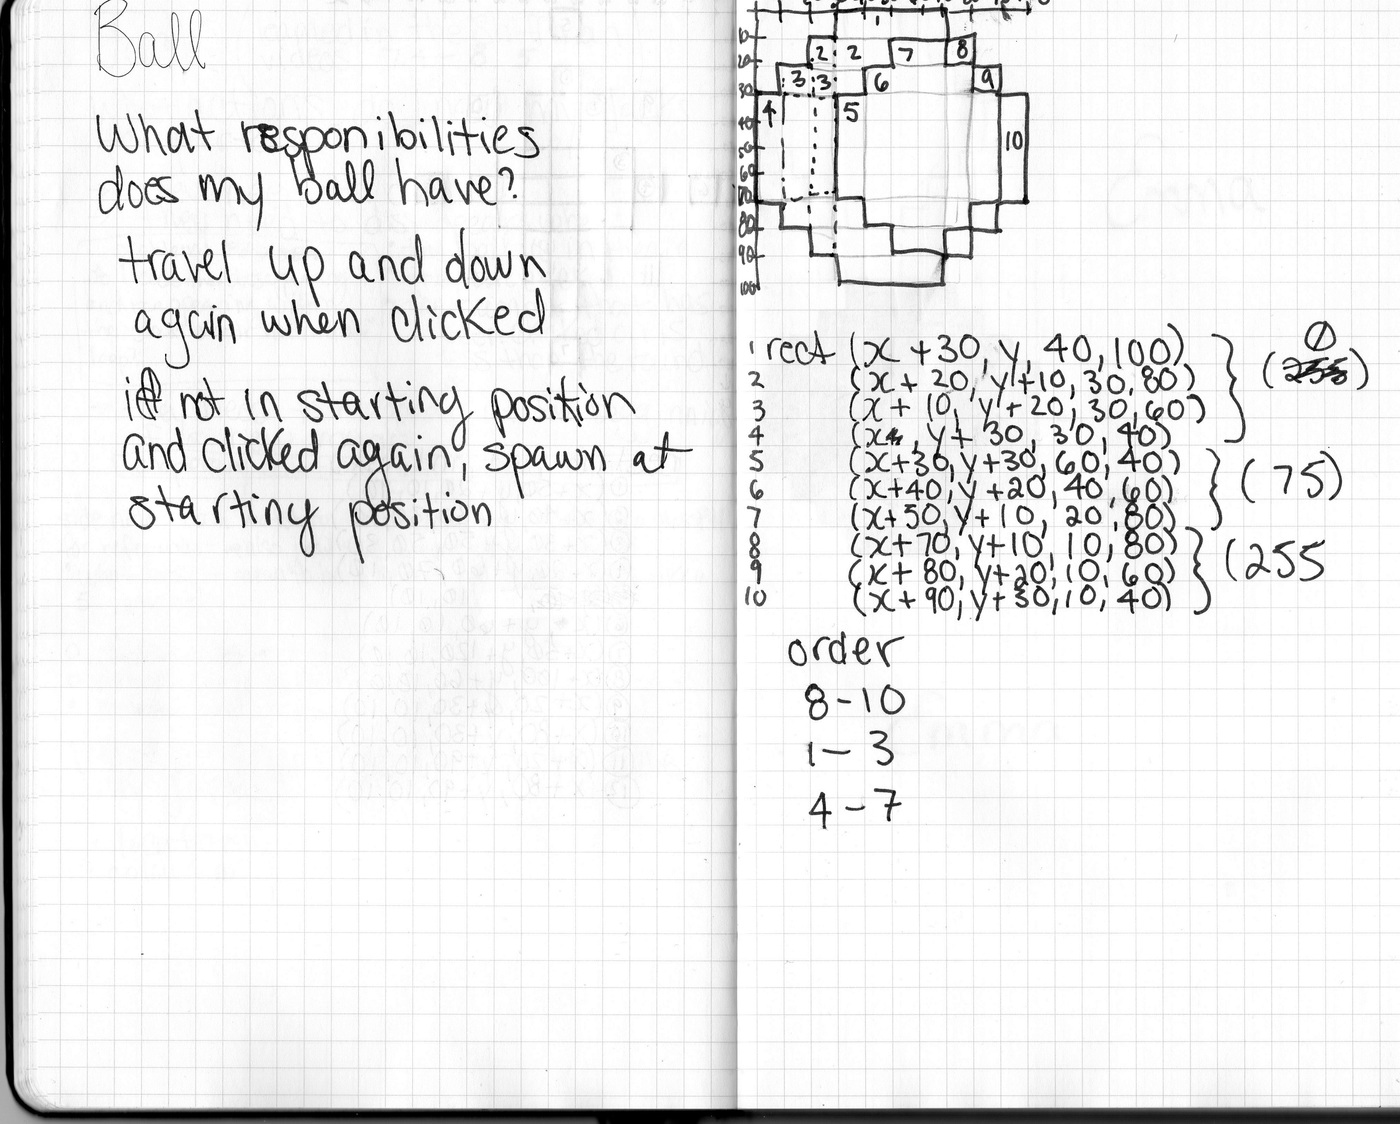 Ball
What responibilities
does my ball have?
travel up and down
again when clicked
if not in starting position
and clicked again, spawn at
starting position
1
2 2 7 8
3 3 6 9
4 5 10
10
20
30
40
50
60
70
80
90
100
1 rect (x+30, y, 40, 100) } (0)
2 (x+20, y+10, 30, 80)
3 (x+10, y+20, 30, 60)
4 (x, y+30, 30, 40)
5 (x+30, y+30, 60, 40) } (75)
6 (x+40, y+20, 40, 60)
7 (x+50, y+10, 20, 80)
8 (x+70, y+10, 10, 80) } (255
9 (x+80, y+20, 10, 60)
10 (x+90, y+30, 10, 40)
order
8-10
1-3
4-7